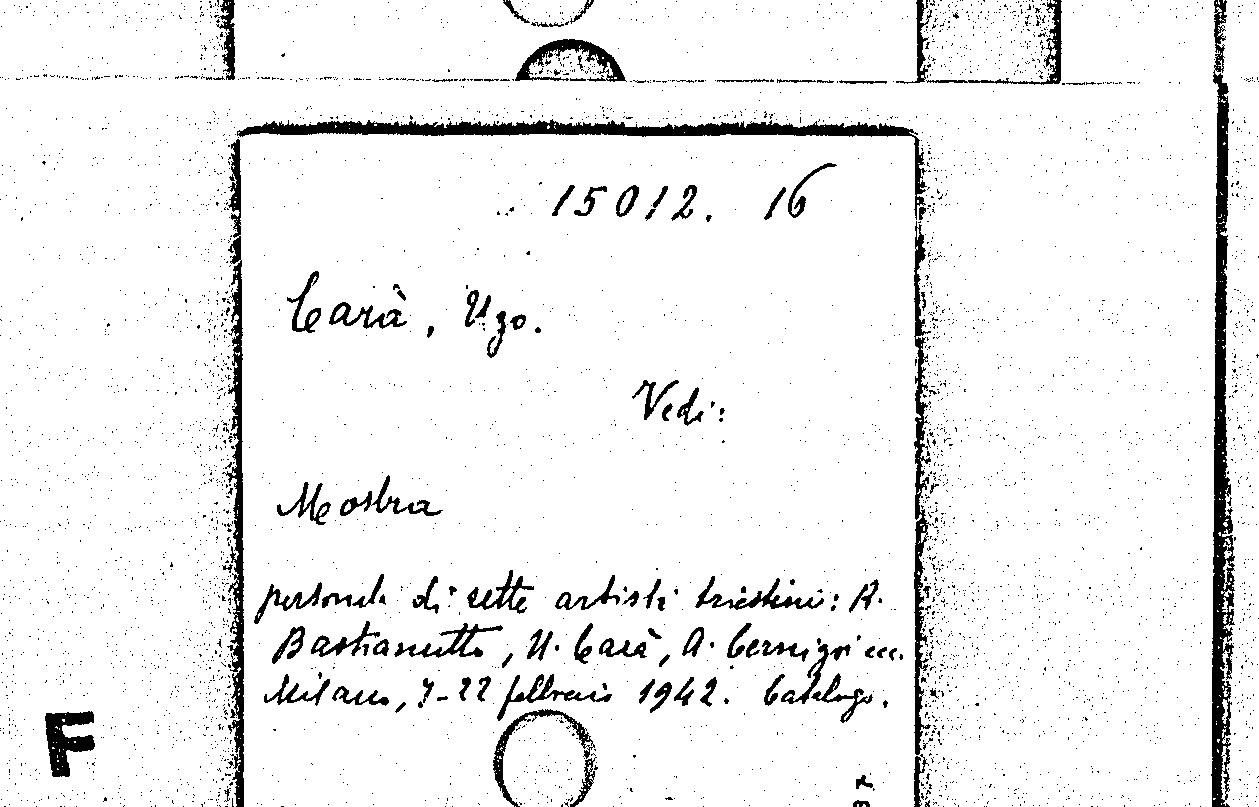 15012. 16
Carà, Ugo.
Vedi:
Mostra
personale di sette artisti triestini: R.
Bastianutto, U. Carà, A. Cernigoi ecc.
Milano, 7-22 febbraio 1942. Catalogo.
F